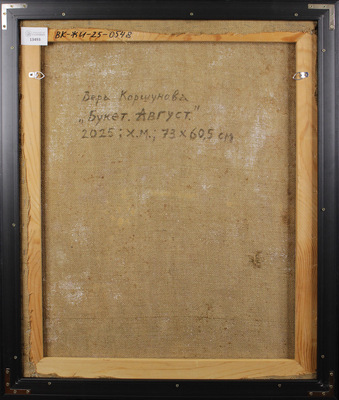 ВК-ЖИ-25-0548
Вера Коршунова
„Букет. Август."
2025; х.м.; 73х60,5 см